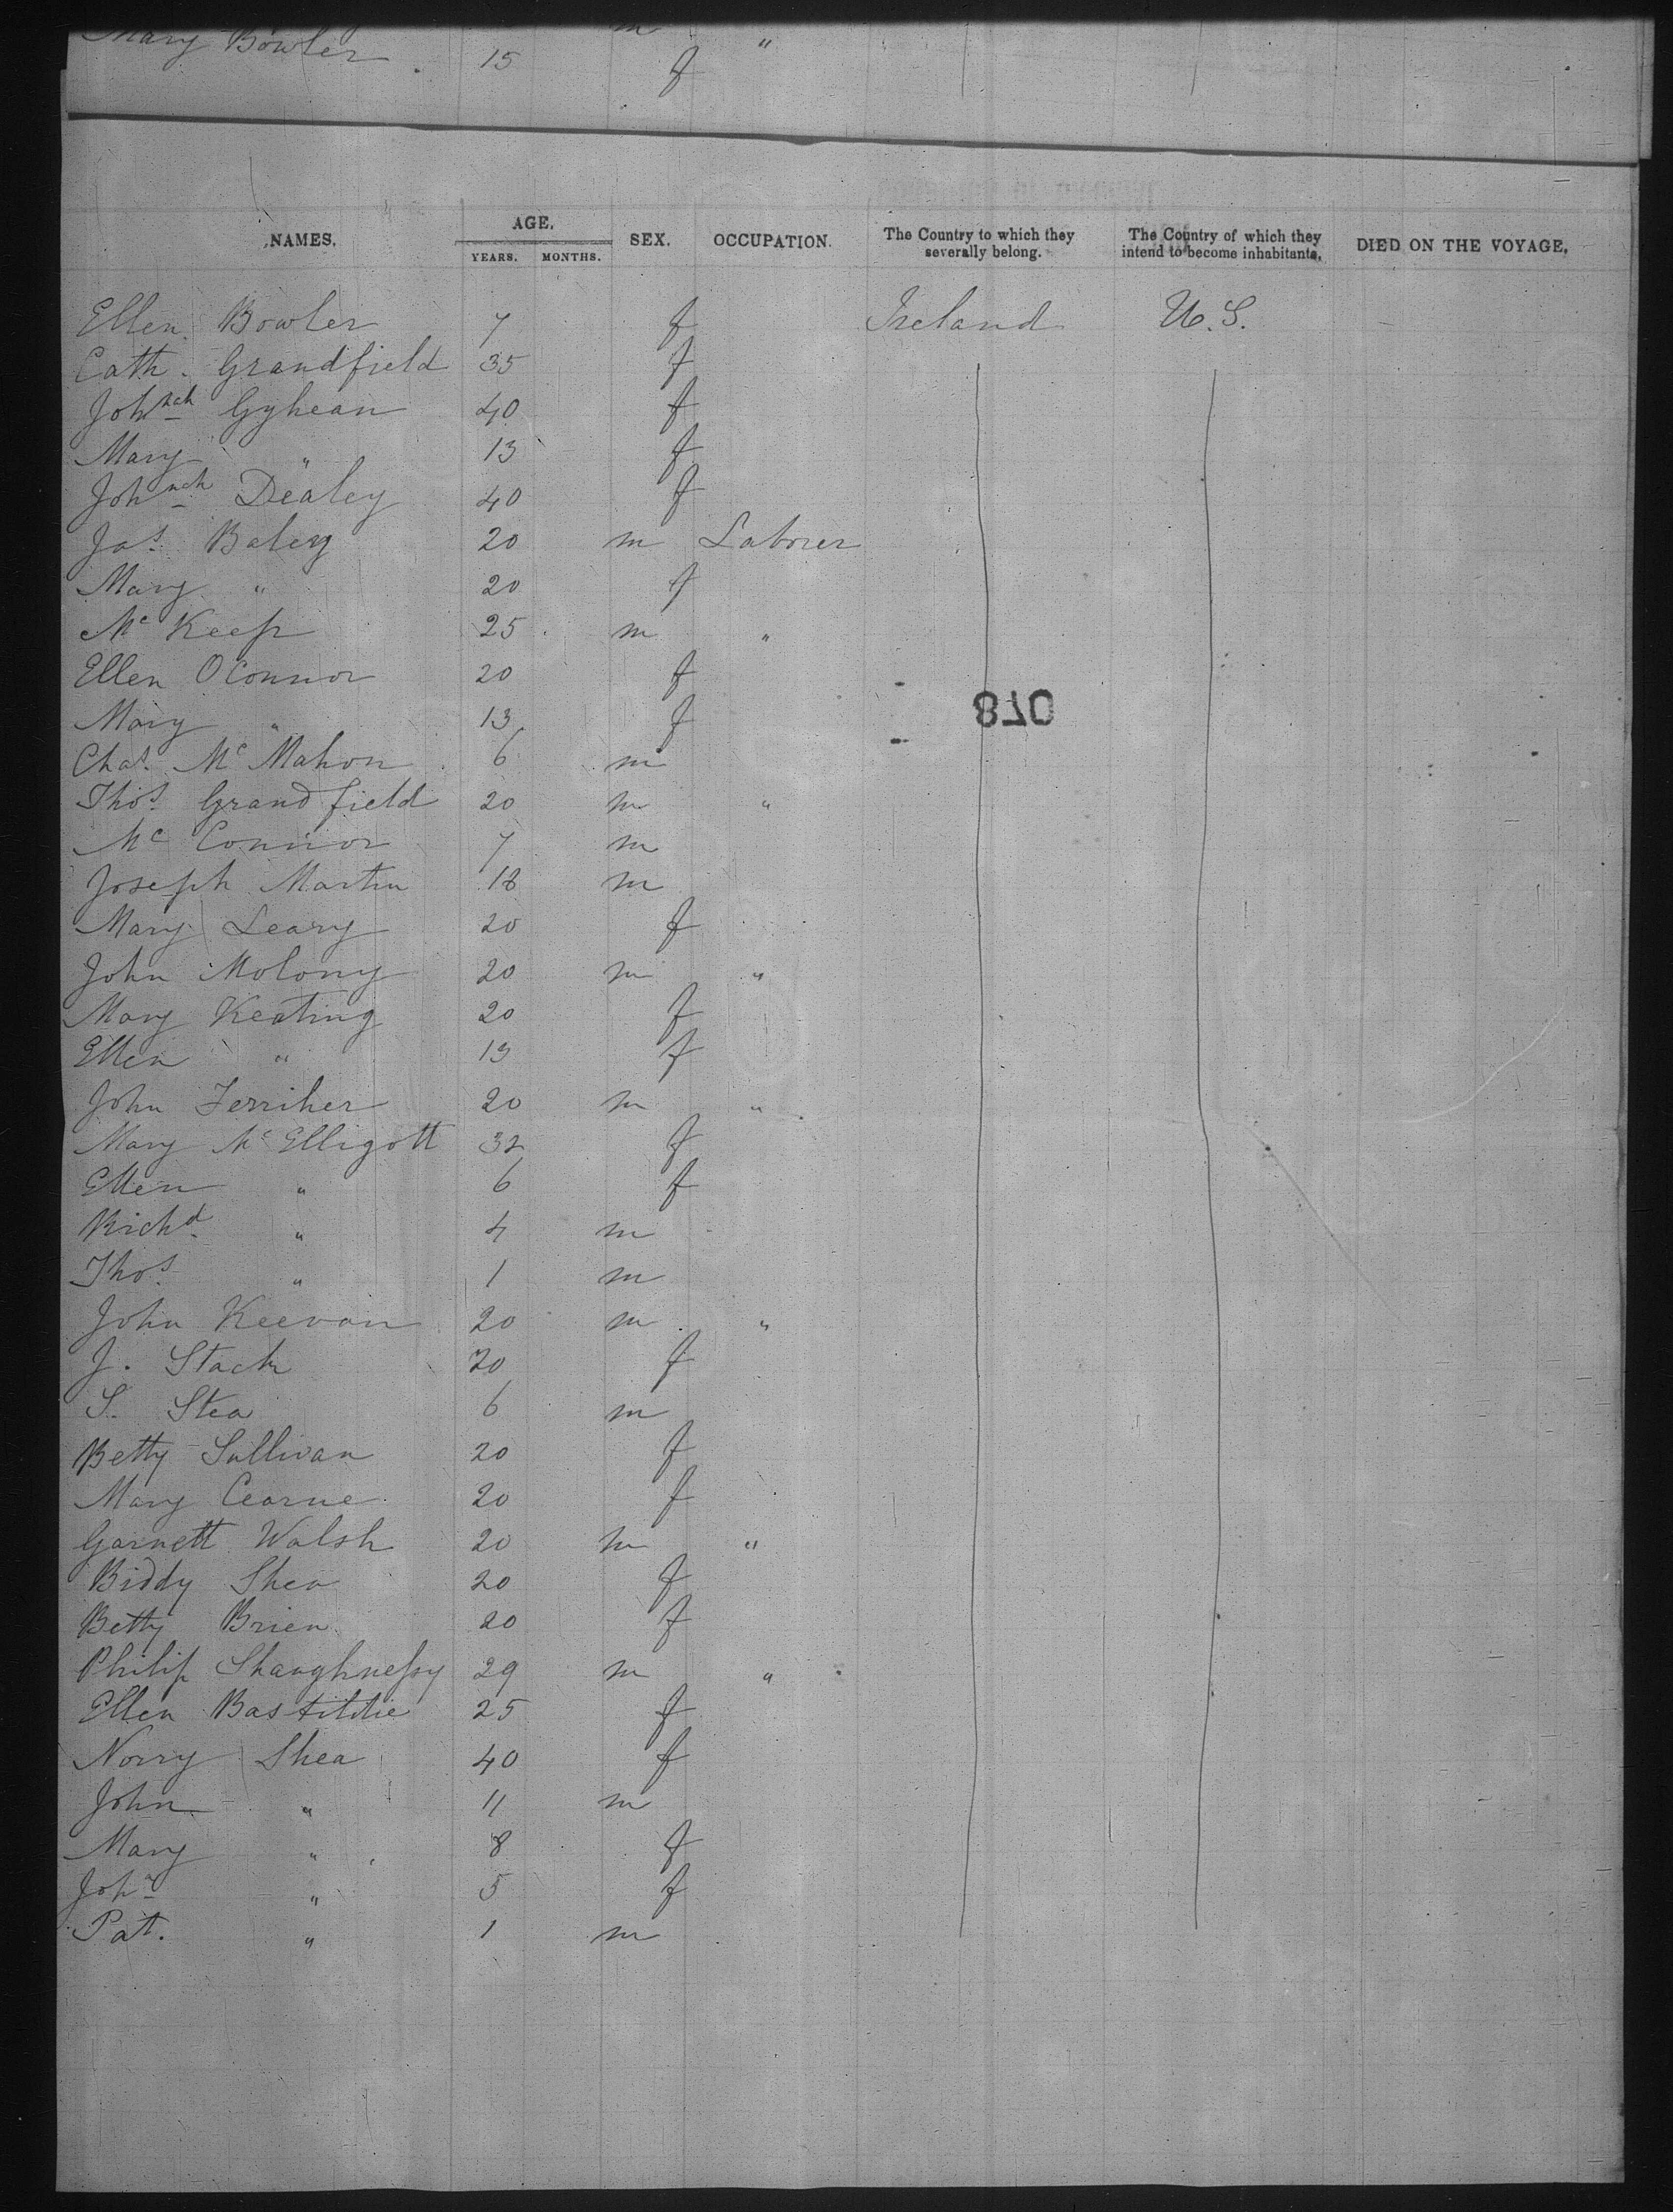 Mary Bowler 15 f "
NAMES. AGE. YEARS. MONTHS. SEX. OCCUPATION. The Country to which they severally belong. The Country of which they intend to become inhabitants. DIED ON THE VOYAGE.
Ellen Bowler 7 f Ireland U.S.
Cath. Grandfield 35 f
Johnah Gyhean 40 f
Mary " 13 f
Johnah Dealey 40 f
Jas. Baley 20 m Laborer
Mary " 20 f
Mc Keefe 25 m "
Ellen OConnor 20 f
Mary " 13 f
078
Chas. Mc Mahon 6 m
Thos. Grandfield 20 m "
Mc Connor 7 m
Joseph Martin 18 m
Mary Leary 20 f
John Molony 20 m "
Mary Keating 20 f
Ellen " 13 f
John Ferriher 20 m "
Mary Mc Elligott 32 f
Ellen " 6 f
Richd. " 4 m
Thos. " 1 m
John Keevan 20 m "
J. Stack 20 f
S. Stea 6 m
Betty Sullivan 20 f
Mary Cearne 20 f
Garnett Walsh 20 m "
Biddy Shea 20 f
Betty Brien 20 f
Philip Shaughnessy 29 m "
Ellen 25 f
Norry Shea 40 f
John " 11 m
Mary " 8 f
Joha " 5 f
Pat. " 1 m